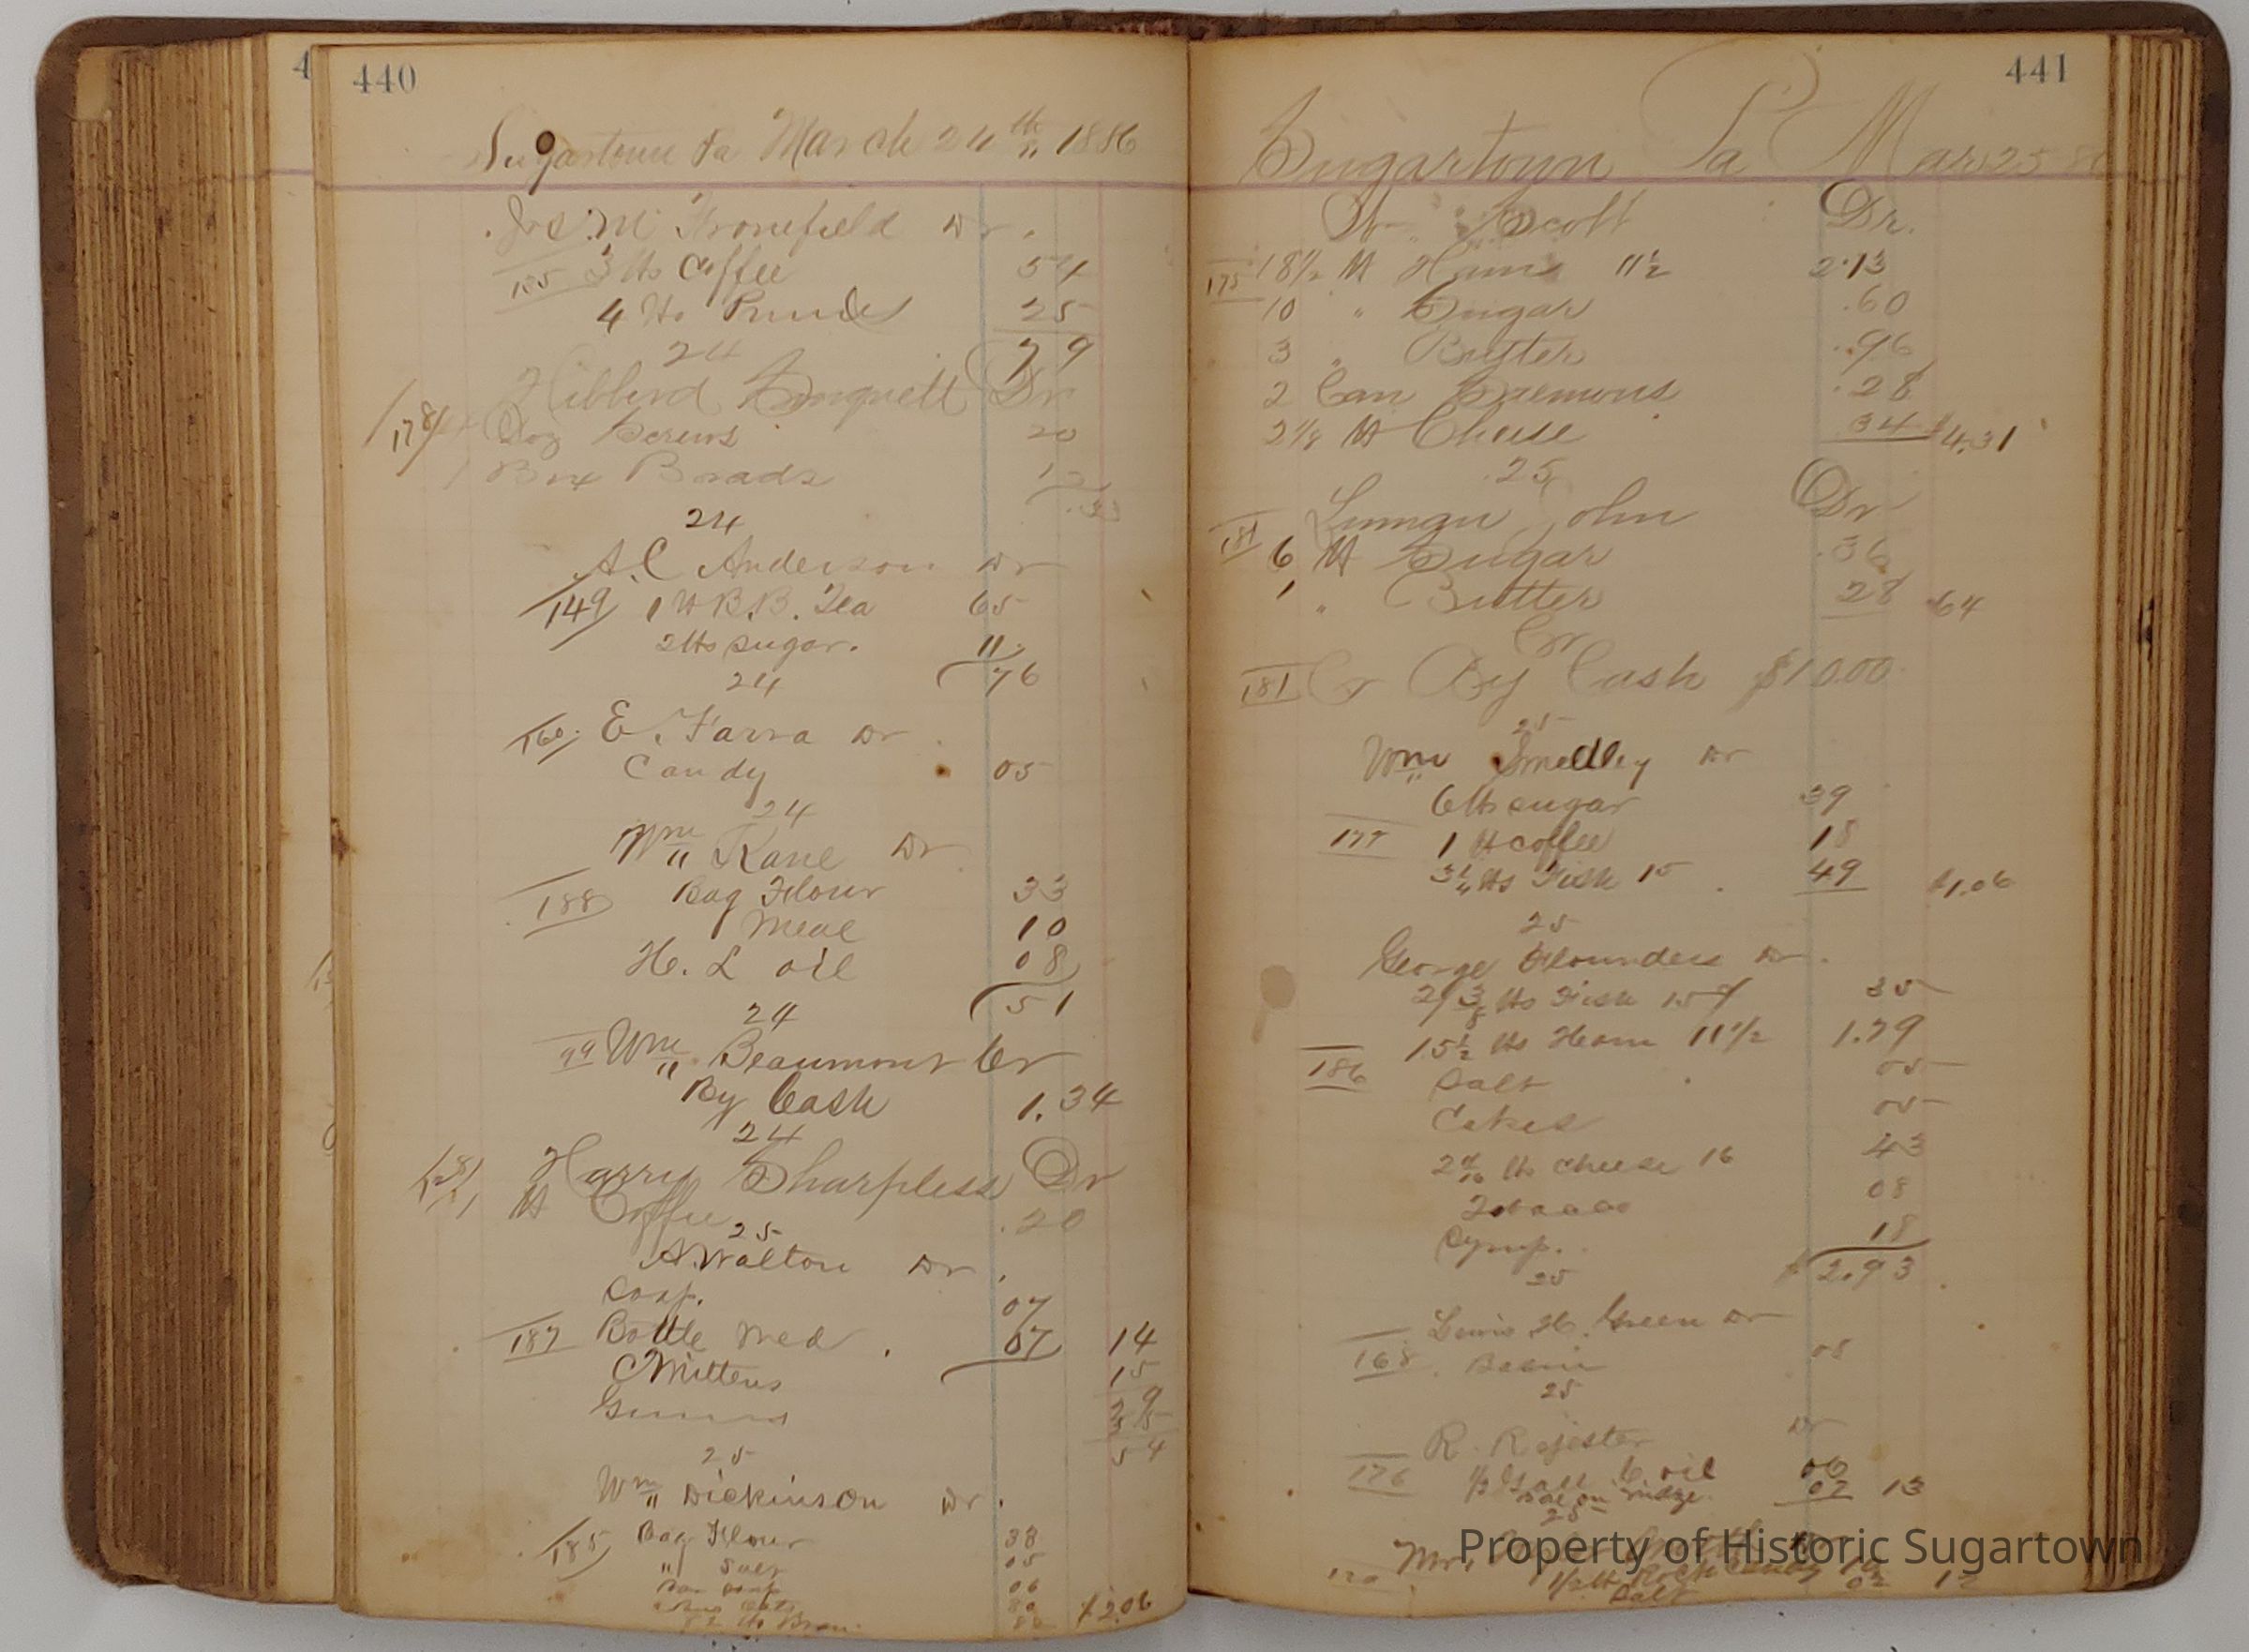 440
Sugartown Pa March 24th 1886
Jos. M Fronefield Dr
185 3 lbs Coffee 54
4 lbs Prunes 25
79
24
Hibberd Dr
178 Doz Screws 20
1 Box Brads
24
A. C Anderson Dr
149 1 lb B.B. Tea 65
2 lbs sugar. 11
76
24
160 E. Farra Dr
Candy 05
24
Wm Kane Dr
188 Bag Flour 33
Meal 10
H. L oil 08
51
24
99 Wm Beaumont Cr
By Cash 1.34
24
Harry Sharpless Dr
lb Coffee .20
25
A. Walton Dr
Soap. 07
187 Bottle Med. 07 14
Mittens 15
Gums
54
25
Wm Dickinson Dr.
185 Bag Flour 38
" Salt 05
06
lbs Bran. $2.06
441
Sugartown Pa Mar 25
Scott Dr.
175 18½ lb Hams 11½ 2.13
10 " Sugar .60
3 " Butter .96
2 Can Salmons .28
2⅛ lb Cheese 34 $4.31
25
John Dr
181 6 lb Sugar .36
1 " Butter 28 .64
Cr
181 Cr By Cash $10.00
25
Wm Smedley Dr
6 lbs sugar 39
177 1 lb coffee 18
3¼ lbs Fish 15 49 $1.06
25
George Flounders Dr.
2 3/8 lbs Fish 15 35
15½ lbs Ham 11½ 1.79
186 Salt 05
Cakes 05
lbs cheese 16 43
Tobacco 08
Syrup. 18
$2.93
25
Lewis H. Green Dr
168 Basin 08
25
R. Rejester Dr
176 ½ Gall C. oil 06
07 13
25
Mrs. Smith
½ lb Rock Candy 10
Salt 02 12
Property of Historic Sugartown